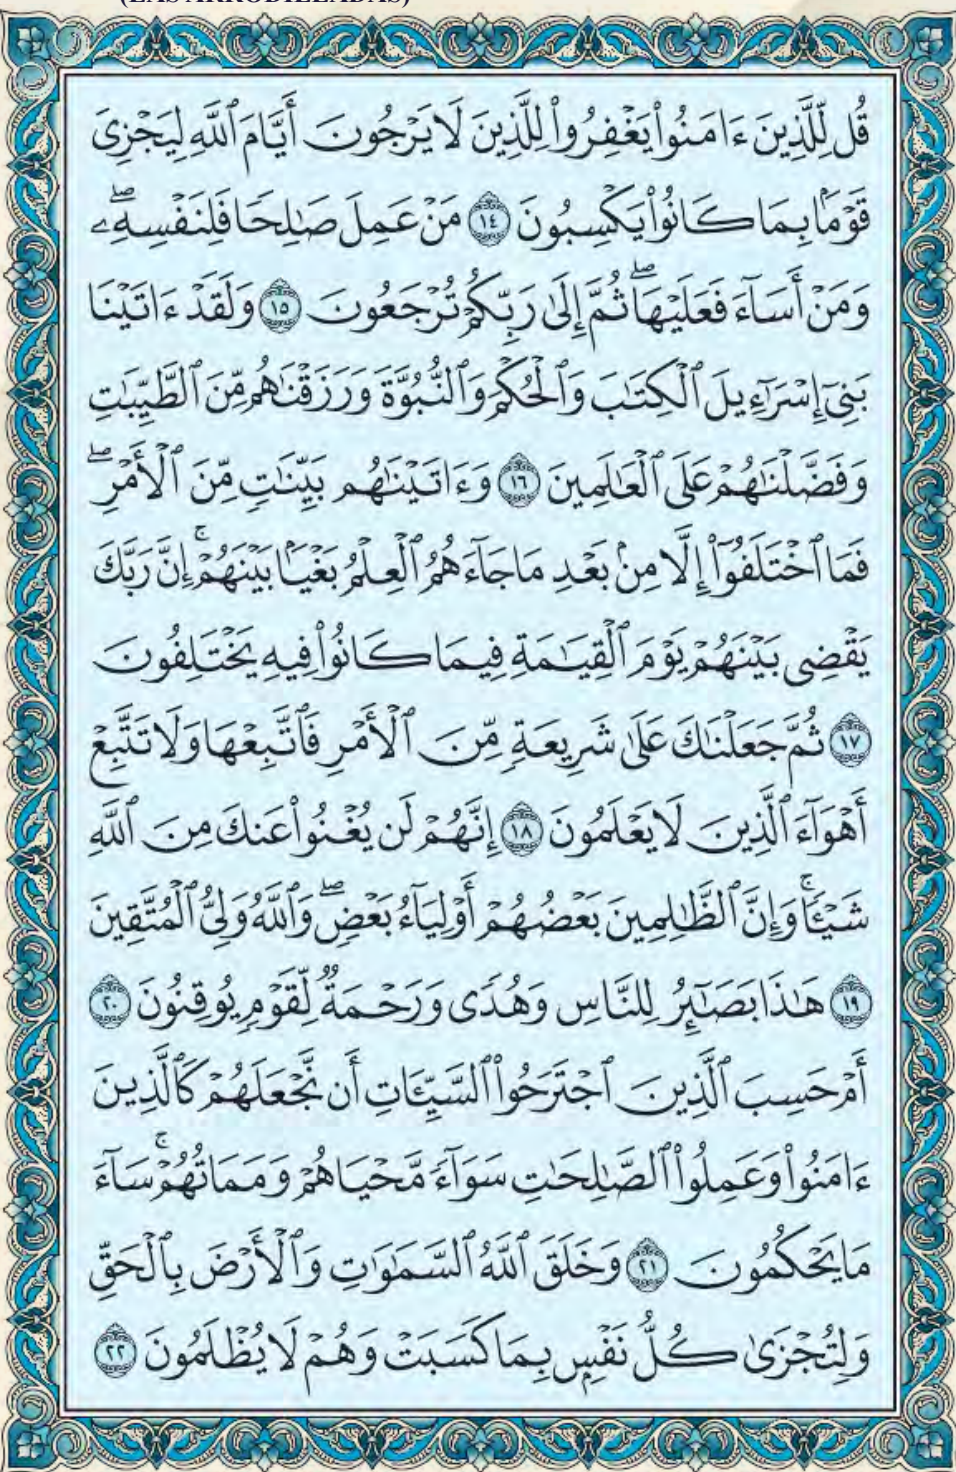 (LAS ARRODILLADAS)
قُل لِّلَّذِينَ ءَامَنُوا۟ يَغْفِرُوا۟ لِلَّذِينَ لَا يَرْجُونَ أَيَّامَ ٱللَّهِ لِيَجْزِىَ
قَوْمًۢا بِمَا كَانُوا۟ يَكْسِبُونَ ١٤ مَنْ عَمِلَ صَـٰلِحًا فَلِنَفْسِهِۦۖ
وَمَنْ أَسَآءَ فَعَلَيْهَاۖ ثُمَّ إِلَىٰ رَبِّكُمْ تُرْجَعُونَ ١٥ وَلَقَدْ ءَاتَيْنَا
بَنِىٓ إِسْرَٰٓءِيلَ ٱلْكِتَـٰبَ وَٱلْحُكْمَ وَٱلنُّبُوَّةَ وَرَزَقْنَـٰهُم مِّنَ ٱلطَّيِّبَـٰتِ
وَفَضَّلْنَـٰهُمْ عَلَى ٱلْعَـٰلَمِينَ ١٦ وَءَاتَيْنَـٰهُم بَيِّنَـٰتٍ مِّنَ ٱلْأَمْرِۖ
فَمَا ٱخْتَلَفُوٓا۟ إِلَّا مِنۢ بَعْدِ مَا جَآءَهُمُ ٱلْعِلْمُ بَغْيًۢا بَيْنَهُمْۚ إِنَّ رَبَّكَ
يَقْضِى بَيْنَهُمْ يَوْمَ ٱلْقِيَـٰمَةِ فِيمَا كَانُوا۟ فِيهِ يَخْتَلِفُونَ
١٧ ثُمَّ جَعَلْنَـٰكَ عَلَىٰ شَرِيعَةٍ مِّنَ ٱلْأَمْرِ فَٱتَّبِعْهَا وَلَا تَتَّبِعْ
أَهْوَآءَ ٱلَّذِينَ لَا يَعْلَمُونَ ١٨ إِنَّهُمْ لَن يُغْنُوا۟ عَنكَ مِنَ ٱللَّهِ
شَيْـًٔاۚ وَإِنَّ ٱلظَّـٰلِمِينَ بَعْضُهُمْ أَوْلِيَآءُ بَعْضٍۖ وَٱللَّهُ وَلِىُّ ٱلْمُتَّقِينَ
١٩ هَـٰذَا بَصَـٰٓئِرُ لِلنَّاسِ وَهُدًى وَرَحْمَةٌ لِّقَوْمٍ يُوقِنُونَ ٢٠
أَمْ حَسِبَ ٱلَّذِينَ ٱجْتَرَحُوا۟ ٱلسَّيِّـَٔاتِ أَن نَّجْعَلَهُمْ كَٱلَّذِينَ
ءَامَنُوا۟ وَعَمِلُوا۟ ٱلصَّـٰلِحَـٰتِ سَوَآءً مَّحْيَاهُمْ وَمَمَاتُهُمْۚ سَآءَ
مَا يَحْكُمُونَ ٢١ وَخَلَقَ ٱللَّهُ ٱلسَّمَـٰوَٰتِ وَٱلْأَرْضَ بِٱلْحَقِّ
وَلِتُجْزَىٰ كُلُّ نَفْسٍۭ بِمَا كَسَبَتْ وَهُمْ لَا يُظْلَمُونَ ٢٢